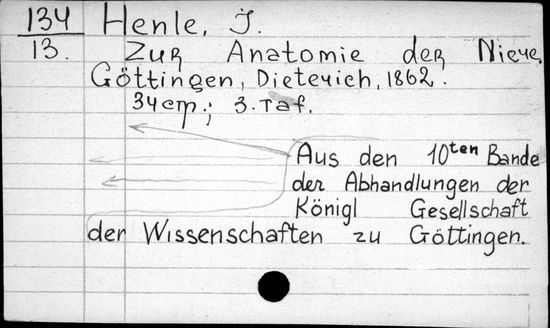 134 Henle, J.
13. Zur Anatomie der Niere,
Göttingen, Dieterich, 1862.
34 cm.; 3. Taf.
Aus den 10ten Bande
der Abhandlungen der
Königl Gesellschaft
der Wissenschaften zu Göttingen.